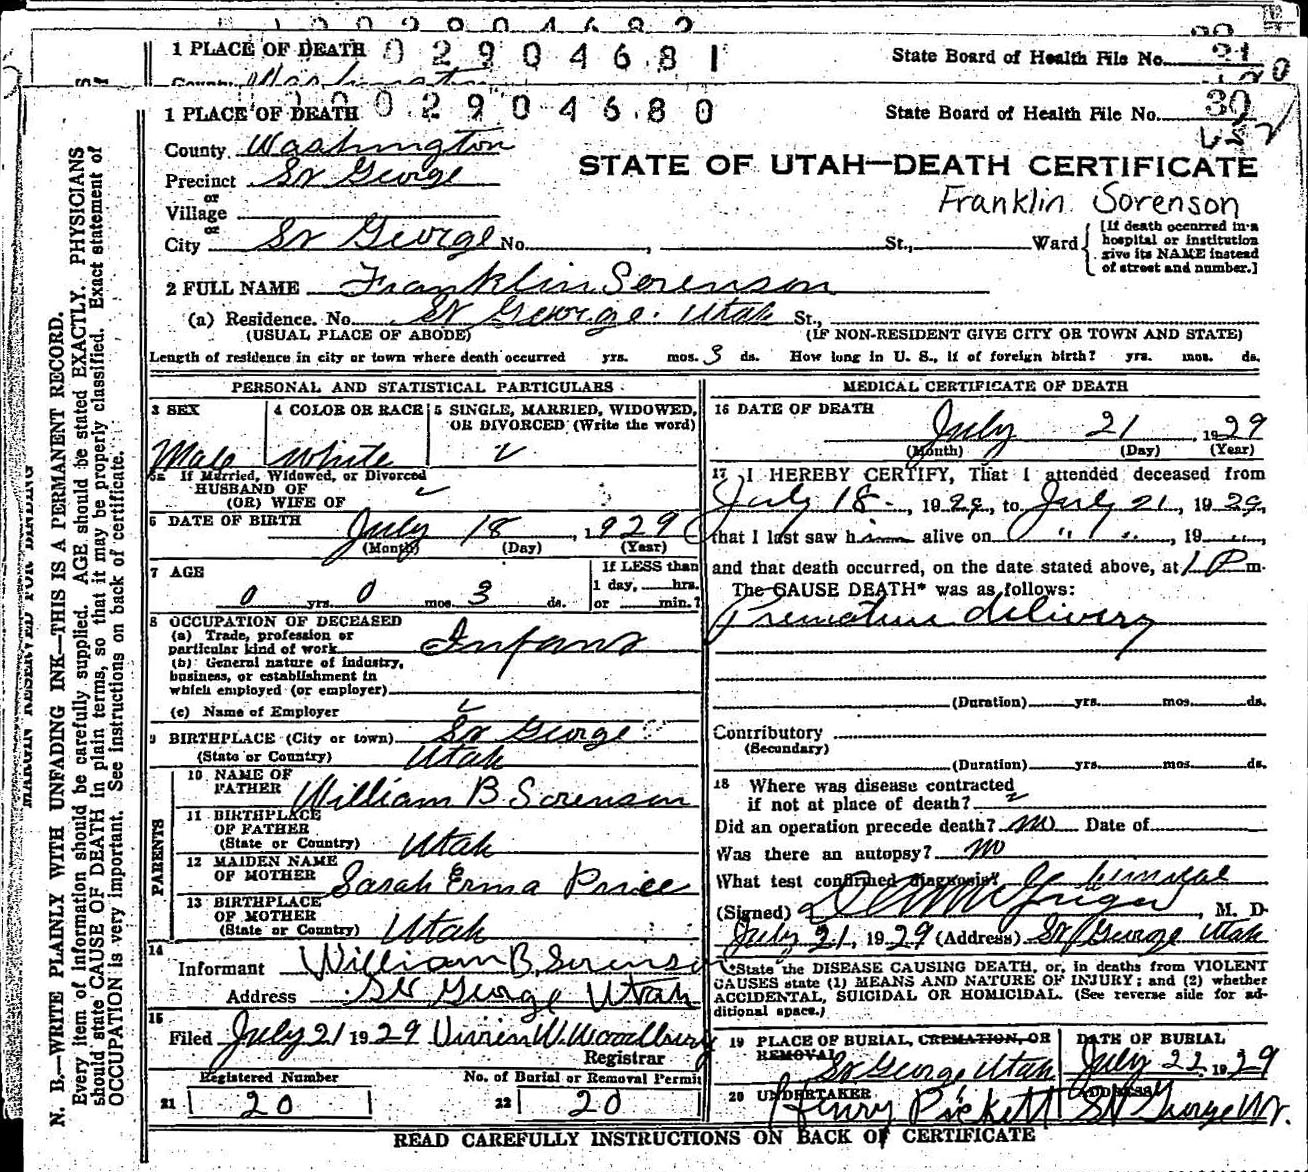 1 PLACE OF DEATH 0 2 9 0 4 6 8 1 State Board of Health File No. 21
County Washington
1 PLACE OF DEATH 0 0 2 9 0 4 6 8 0 State Board of Health File No. 30
County Washington
STATE OF UTAH—DEATH CERTIFICATE
Precinct St George
Franklin Sorenson
or
Village
or
City St George No. , St., Ward
[If death occurred in a hospital or institution give its NAME instead of street and number.]
2 FULL NAME Franklin Sorenson
(a) Residence. No. St George. Utah St.,
(USUAL PLACE OF ABODE) (IF NON-RESIDENT GIVE CITY OR TOWN AND STATE)
Length of residence in city or town where death occurred yrs. mos. 3 ds. How long in U. S., if of foreign birth? yrs. mos. ds.
PERSONAL AND STATISTICAL PARTICULARS
3 SEX 4 COLOR OR RACE 5 SINGLE, MARRIED, WIDOWED,
OR DIVORCED (Write the word)
Male White
5a If Married, Widowed, or Divorced
HUSBAND OF
(OR) WIFE OF
6 DATE OF BIRTH July 18, 1929
(Month) (Day) (Year)
7 AGE
0 yrs. 0 mos. 3 ds.
If LESS than
1 day, hrs.
or min.?
8 OCCUPATION OF DECEASED
(a) Trade, profession or
particular kind of work Infant
(b) General nature of industry,
business, or establishment in
which employed (or employer)
(c) Name of Employer
9 BIRTHPLACE (City or town) St George
(State or Country) Utah
PARENTS
10 NAME OF
FATHER William B Sorenson
11 BIRTHPLACE
OF FATHER
(State or Country) Utah
12 MAIDEN NAME
OF MOTHER Sarah Erma Price
13 BIRTHPLACE
OF MOTHER
(State or Country) Utah
14
Informant William B. Sorenson
Address St George Utah
15
Filed July 21 1929 Vivien W. Woodbury
Registrar
Registered Number No. of Burial or Removal Permit
21 20 22 20
MEDICAL CERTIFICATE OF DEATH
16 DATE OF DEATH
July 21, 1929
(Month) (Day) (Year)
17 I HEREBY CERTIFY, That I attended deceased from
July 18, 1929, to July 21, 1929,
that I last saw him alive on " " , 19 ",
and that death occurred, on the date stated above, at 1 P m.
The CAUSE DEATH* was as follows:
Premature delivery
(Duration) yrs. mos. ds.
Contributory
(Secondary)
(Duration) yrs. mos. ds.
18 Where was disease contracted
if not at place of death?
Did an operation precede death? no Date of
Was there an autopsy? no
What test confirmed diagnosis?
(Signed) , M. D.
July 21, 1929 (Address) St George Utah
*State the DISEASE CAUSING DEATH, or, in deaths from VIOLENT
CAUSES state (1) MEANS AND NATURE OF INJURY; and (2) whether
ACCIDENTAL, SUICIDAL OR HOMICIDAL. (See reverse side for ad-
ditional space.)
19 PLACE OF BURIAL, CREMATION, OR DATE OF BURIAL
REMOVAL St George Utah July 22, 1929
20 UNDERTAKER ADDRESS
Henry Pickett St George Ut.
READ CAREFULLY INSTRUCTIONS ON BACK OF CERTIFICATE
MARGIN RESERVED FOR BINDING
N. B.—WRITE PLAINLY WITH UNFADING INK—THIS IS A PERMANENT RECORD.
Every item of information should be carefully supplied. AGE should be stated EXACTLY. PHYSICIANS
should state CAUSE OF DEATH in plain terms, so that it may be properly classified. Exact statement of
OCCUPATION is very important. See instructions on back of certificate.